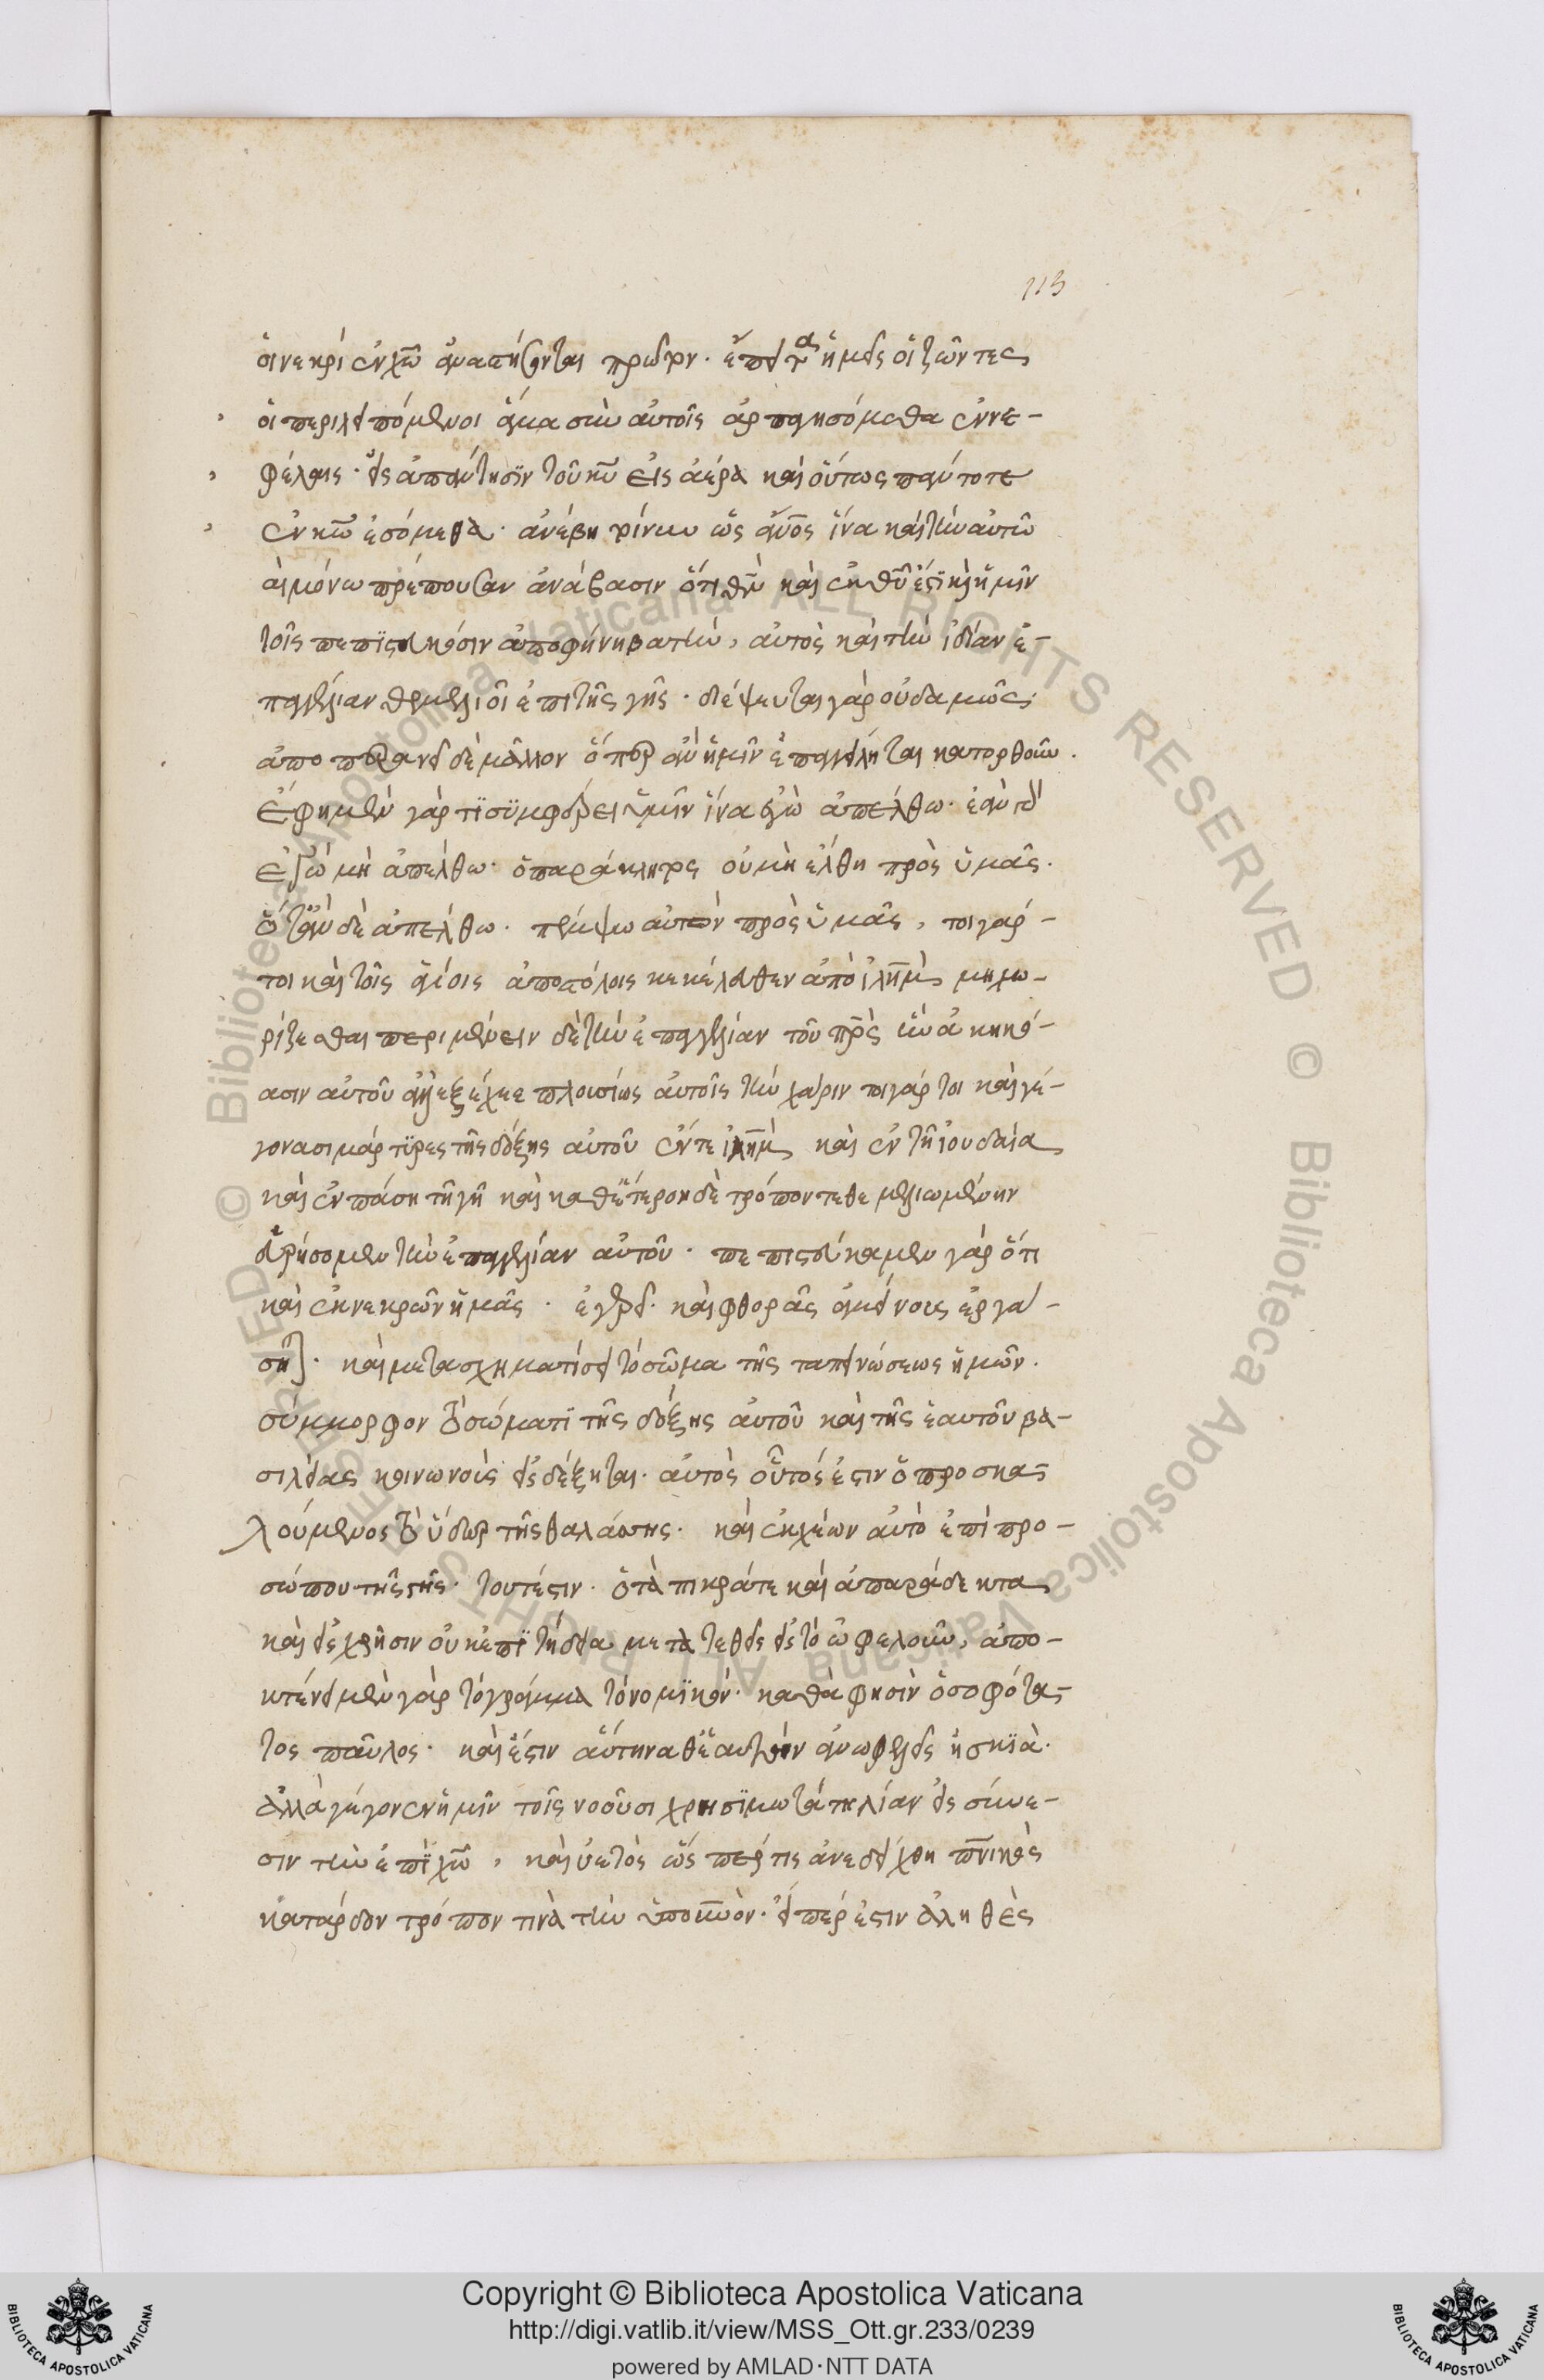 113
οἱ νεκροὶ ἐν χω ἀναστήσονται πρῶτον. ἔπειτα ἡμεῖς οἱ ζῶντες
οἱ περιλειπόμενοι ἅμα σὺν αὐτοῖς ἁρπαγησόμεθα ἐν νε-
φέλαις. εἰς ἀπάντησιν τοῦ κυ εἰς ἀέρα καὶ οὕτως πάντοτε
ἐν κω ἐσόμεθα. ἀνέβη τοίνυν ὡς ἄνος ἵνα καὶ τὴν αὐτῶ
μόνω πρέπουσαν ἀνάβασιν ὅτι θν καὶ ἐκ θυ ἐστὶ καὶ ἡμῖν
τοῖς πεπιστευκόσιν ἀποφήνη βατὴν, αὐτὸς καὶ τὴν ἰδίαν ἐ-
παγγελίαν θεμελιοῖ ἐπὶ τῆς γῆς. διέψευσται γὰρ οὐδαμῶς.
ἀποπεραίνει δὲ μᾶλλον ὅπερ ἂν ἡμῖν ἐπαγγείληται κατορθοῦν.
ἔφη μὲν γὰρ τι συμφέρει ὑμῖν ἵνα ἐγὼ ἀπέλθω. ἐὰν γὰρ
ἐγὼ μὴ ἀπέλθω. ὁ παράκλητος οὐ μὴ ἔλθη πρὸς ὑμᾶς.
ὅταν δὲ ἀπέλθω. πέμψω αὐτὸν πρὸς ὑμᾶς, τοιγάρ-
τοι καὶ τοῖς ἁγίοις ἀποστόλοις κεκέλευκεν ἀπὸ ἱλημ μὴ χω-
ρίζεσθαι περιμένειν δὲ τὴν ἐπαγγελίαν τοῦ πρς ἣν ἀκηκό-
ασιν αὐτοῦ ἐξέχεε πλουσίως αὐτοῖς τὴν χάριν τοιγάρτοι καὶ γε-
γόνασι μάρτυρες τῆς δόξης αὐτοῦ ἔν τε ἱλημ καὶ ἐν τῆ ἰουδαία
καὶ ἐν πάση τῆ γῆ καὶ καθ' ἕτερον δὲ τρόπον τεθεμελιωμένην
εὑρήσομεν τὴν ἐπαγγελίαν αὐτοῦ. πεπιστεύκαμεν γὰρ ὅτι
καὶ ἐκ νεκρῶν ἡμᾶς. ἐγερεῖ. καὶ φθορᾶς ἀμείνους ἐργά-
σηται. καὶ μετασχηματίσει τὸ σῶμα τῆς ταπεινώσεως ἡμῶν.
σύμμορφον τῶ σώματι τῆς δόξης αὐτοῦ καὶ τῆς ἑαυτοῦ βα-
σιλείας κοινωνοὺς εἰσδέξηται. αὐτὸς οὗτός ἐστιν ὁ προσκα-
λούμενος τὸ ὕδωρ τῆς θαλάσσης. καὶ ἐκχέων αὐτὸ ἐπὶ προ-
σώπου τῆς γῆς. τουτέστιν. ὁ τὰ πικρά τε καὶ ἀπαράδεκτα
καὶ εἰς χρῆσιν οὐκ ἐπιτήδεια μετατεθεὶς εἰς τὸ ὠφελοῦν, ἀπο-
κτένει μὲν γὰρ τὸ γράμμα τὸ νομικόν. καθά φησιν ὁ σοφώτα-
τος παῦλος. καὶ ἔστιν αὕτη καθ' ἑαυτὴν ἀνωφελὴς ἡ σκιὰ.
ἀλλὰ γέγονεν ἡμῖν τοῖς νοοῦσι χρησιμωτάτη λίαν εἰς σύνε-
σιν τὴν ἐπὶ χω, καὶ ὑετὸς ὥσπερ τις ἀνεδείχθη πνικὸς
κατάρδων τρόπον τινὰ τὴν ὑπ' οὐνόν. εἴπερ ἐστιν ἀληθὲς
Copyright © Biblioteca Apostolica Vaticana
http://digi.vatlib.it/view/MSS_Ott.gr.233/0239
powered by AMLAD·NTT DATA